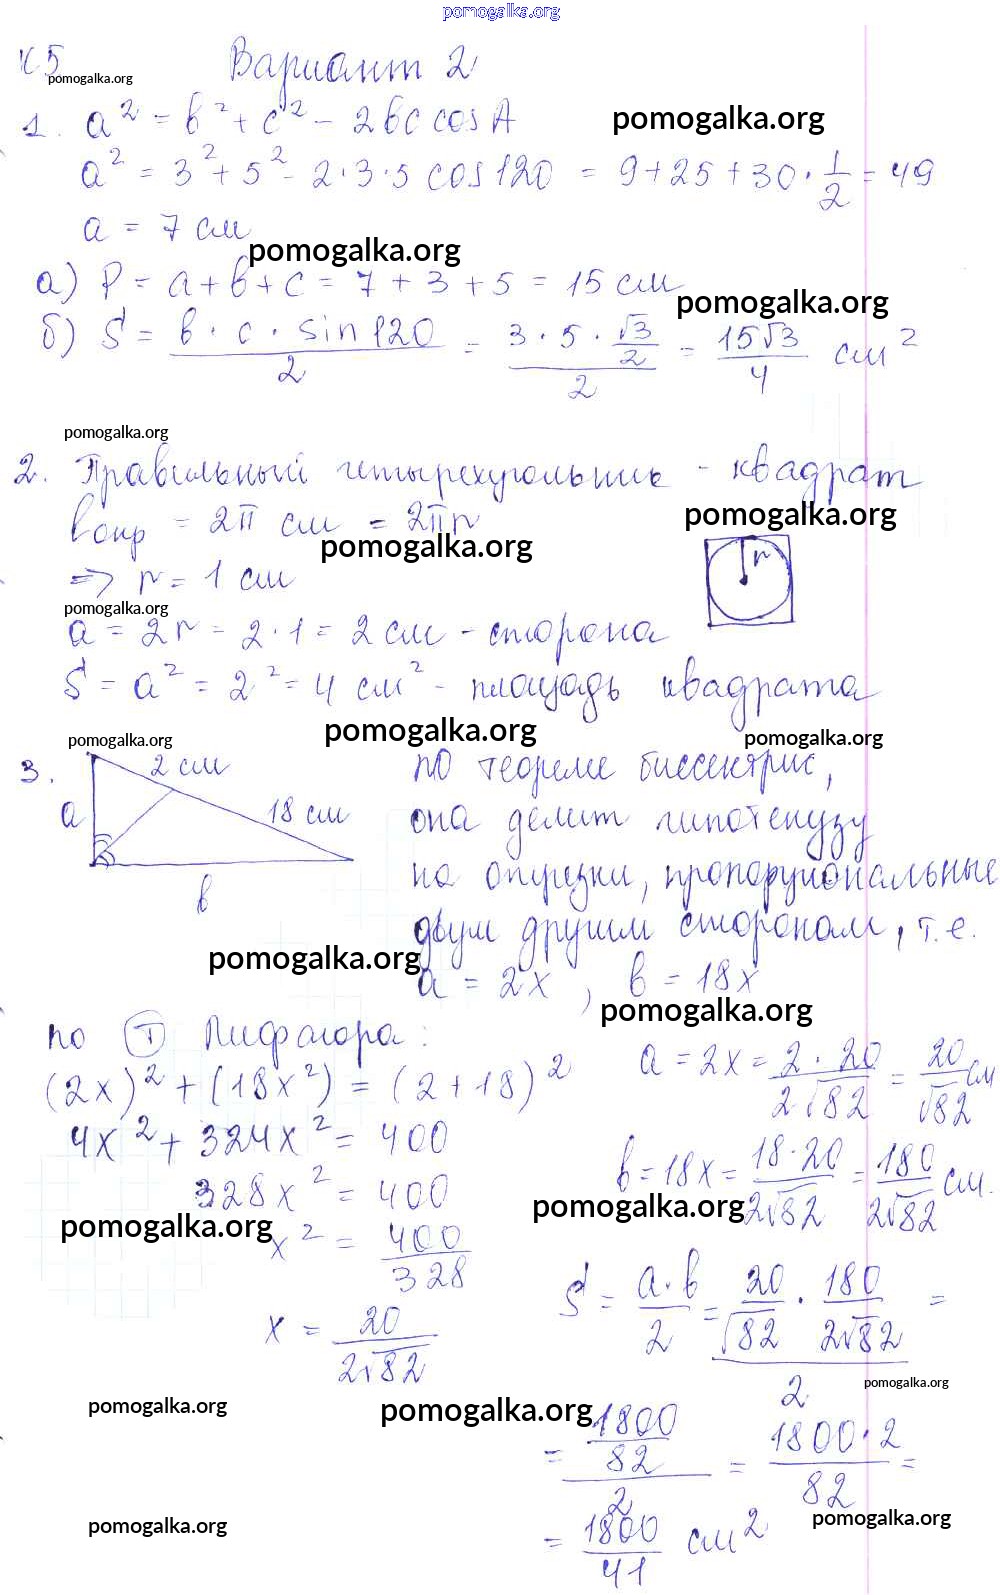 pomogalka.org
К5 Вариант 2
pomogalka.org
1. a² = b² + c² - 2bc cosA
pomogalka.org
a² = 3² + 5² - 2·3·5 cos120 = 9+25+30·1/2 = 49
a = 7 см
pomogalka.org
а) P = a+b+c = 7+3+5 = 15 см
pomogalka.org
б) S = b·c·sin120/2 = 3·5·√3/2/2 = 15√3/4 см²
pomogalka.org
2. Правильный четырехугольник - квадрат
lокр = 2π см = 2πr
pomogalka.org
pomogalka.org
r
=> r = 1 см
pomogalka.org
a = 2r = 2·1 = 2 см - сторона
S = a² = 2² = 4 см² - площадь квадрата
pomogalka.org
pomogalka.org
pomogalka.org
3. 2 см
18 см
a
b
по теореме биссектрис,
она делит гипотенузу
на отрезки, пропорциональные
двум другим сторонам, т.е.
pomogalka.org
a = 2x, b = 18x
pomogalka.org
по Т Пифагора:
(2x)² + (18x²) = (2+18)²
4x² + 324x² = 400
328x² = 400
pomogalka.org
x² = 400/328
x = 20/2√82
a = 2x = 2·20/2√82 = 20/√82 см
b = 18x = 18·20/2√82 = 180/2√82 см.
pomogalka.org
S = a·b/2 = 20/√82 · 180/2√82/2 =
pomogalka.org
pomogalka.org
pomogalka.org
= 1800/82/2 = 1800·2/82 =
pomogalka.org
pomogalka.org
= 1800/41 см²